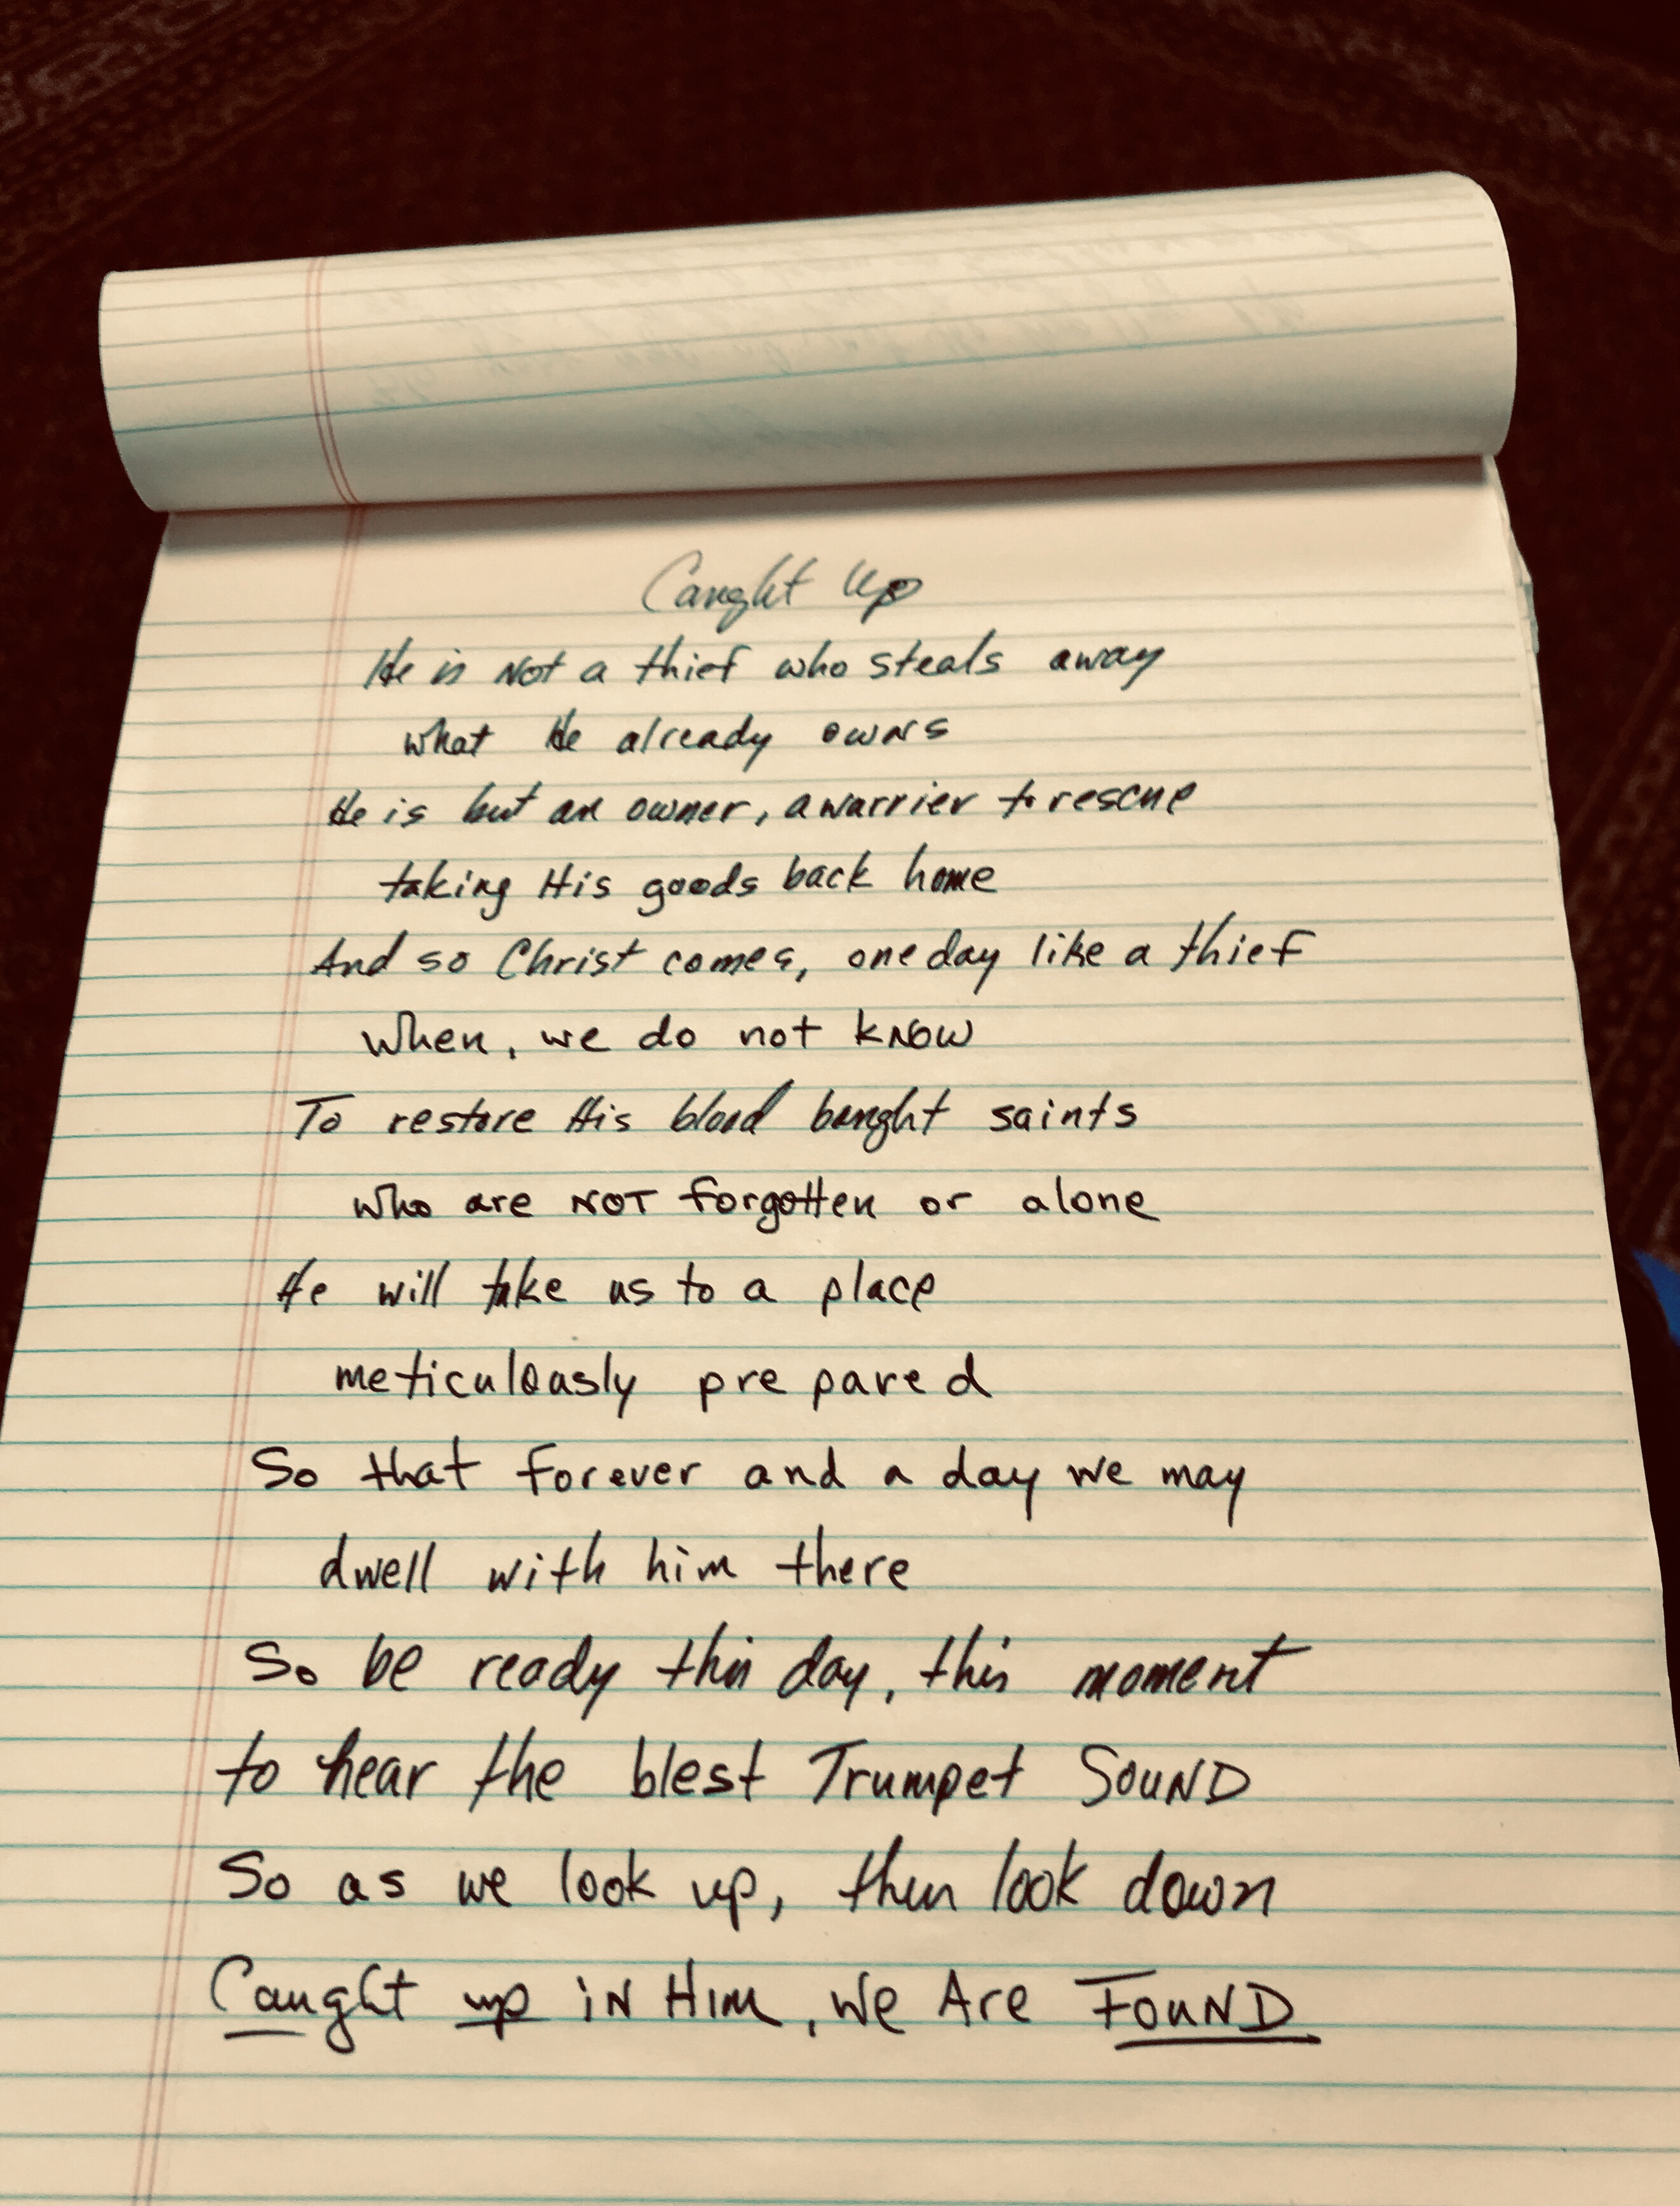 Caught Up
He is Not a thief who steals away
what He already owns
He is but an owner, a warrier to rescue
taking His goods back home
And so Christ comes, one day like a thief
when, we do not know
To restore His blood bought saints
who are NOT forgotten or alone
He will take us to a place
meticulously prepared
So that forever and a day we may
dwell with him there
So be ready this day, this moment
to hear the blest Trumpet SOUND
So as we look up, then look down
Caught up iN HIM, We Are FOUND